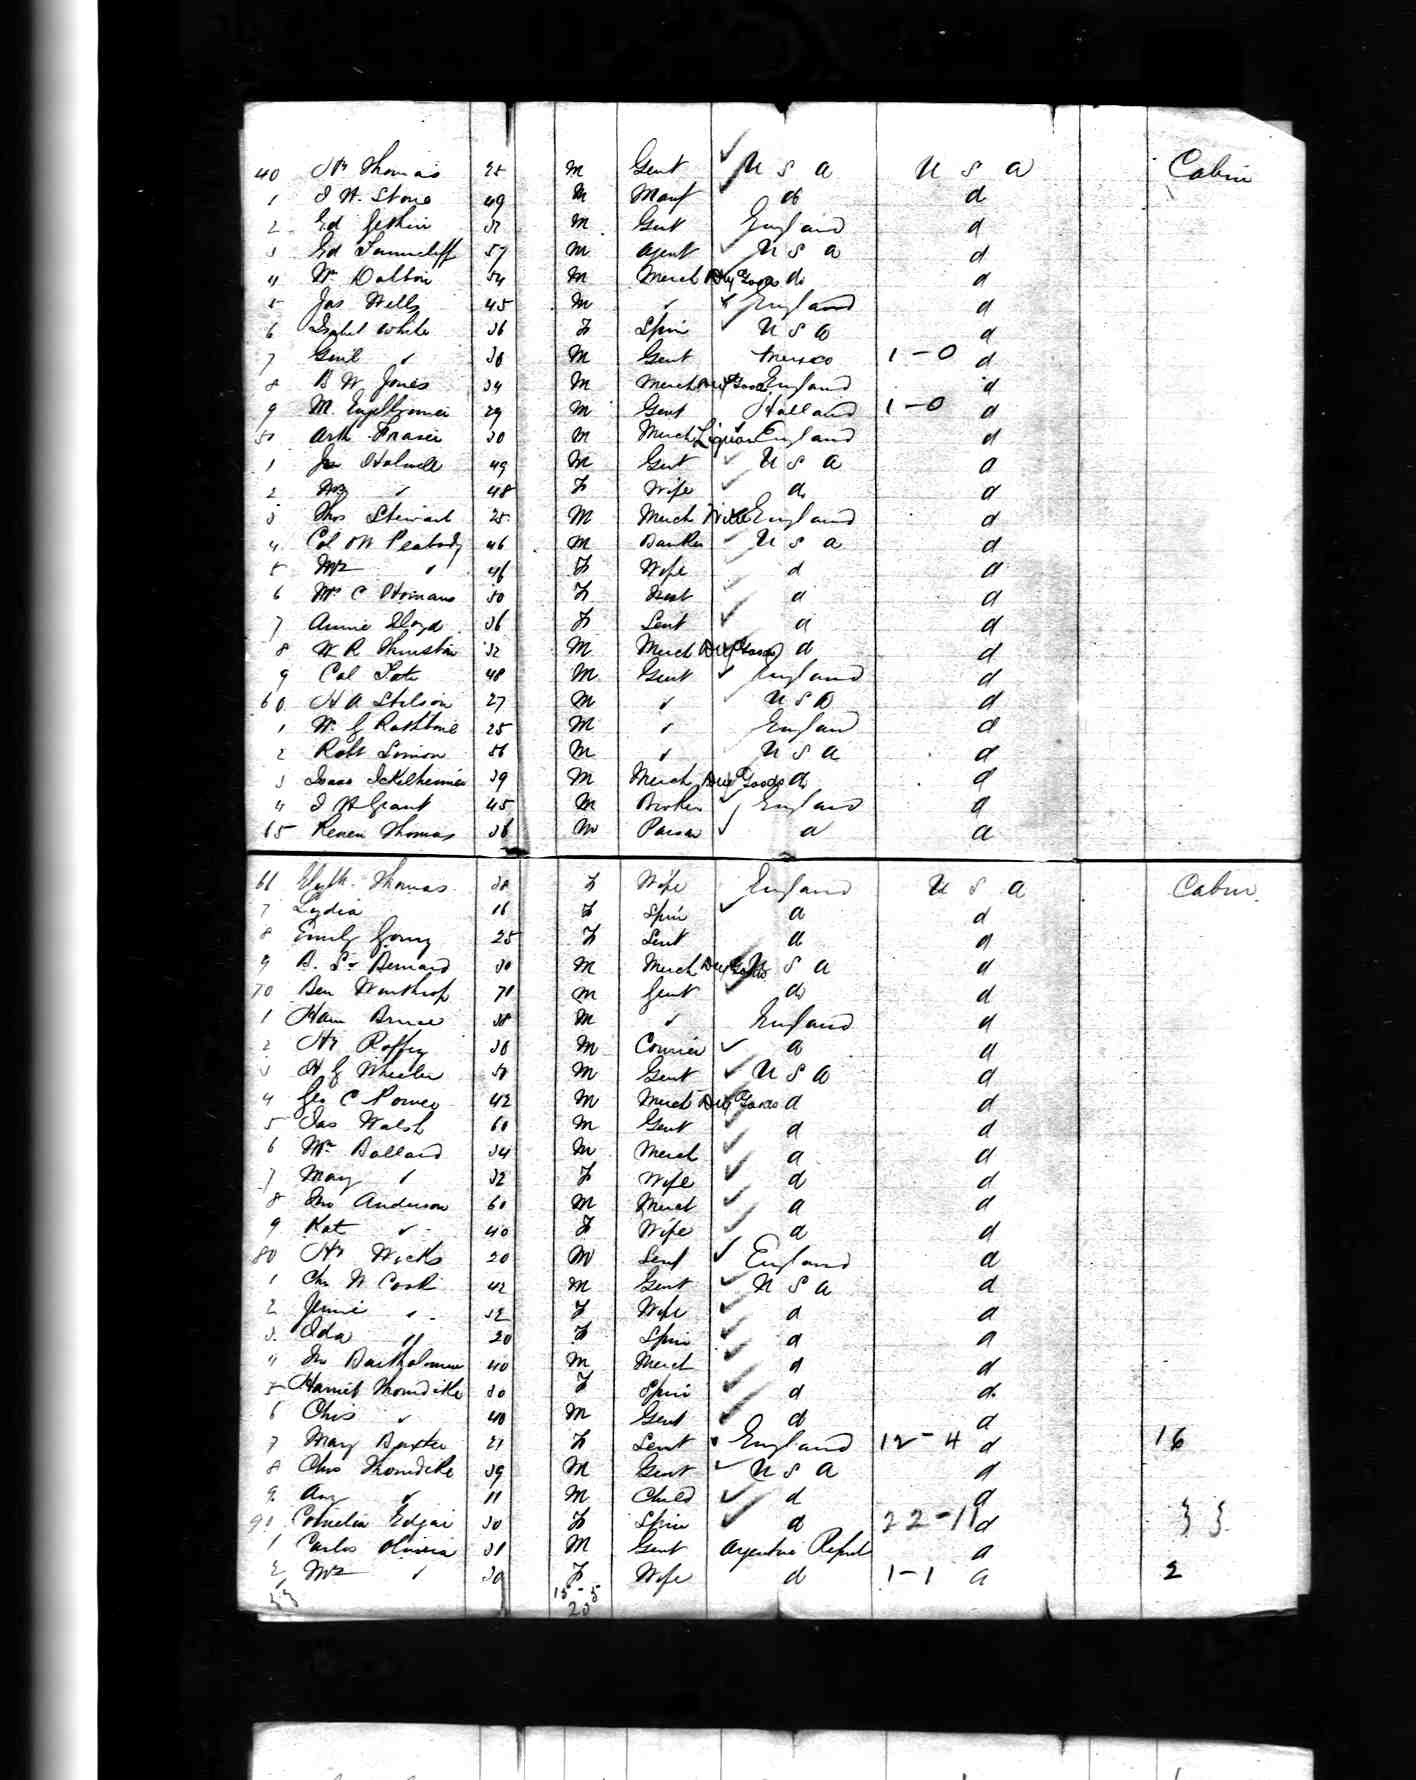 40 Thomas 25 m Gent U S a U S a Cabin
1 J H. Stone 49 m Manf do d
2 Ed m Gent England d
3 Ed 57 m agent U S a d
4 Wm Dalton 54 m Merch Dry Goods do d
5 Jas Wells 45 m " England d
6 Isabel White 36 F Spin U S a d
7 " 30 m Gent Mexico 1-0 d
8 B W Jones 34 m Merch Dry Goods England d
9 M. 29 m Gent Holland 1-0 d
50 Arth Fraser 30 m Merch Liquor England d
1 49 m Gent U S a d
2 Mrs " 48 F Wife do d
3 Thos Stewart 25 m Merch England d
4 Col Peabody 46 m Banker U S a d
5 Mrs " 46 F Wife d d
6 Mrs C Homans 50 F d d
7 Annie Lloyd 36 F Sent d d
8 W R Thurston 32 m Merch Dry Goods d d
9 Col 48 m Gent England d
60 H A Stetson 27 m " U S a d
1 W. G Rathbone 25 m " England d
2 Robt Simon 56 m " U S a d
3 Isaac Ickelheimer 39 m Merch Dry Goods do d
4 J H Grant 45 m Broker England d
65 Reuen Thomas 36 m Parson d d
66 Thomas F Wife England U S a Cabin
7 Lydia 16 F Spin d d
8 Emily 25 F Sent d d
9 B. Bernard 30 m Merch Dry Goods U S a d
70 Ben Winthrop 70 m Gent do d
1 Ham Bruce 38 m " England d
2 Hy 36 m Courier d d
3 H G Wheeler 50 m Gent U S a d
4 Geo C 42 m Merch Dry Goods d d
5 Jas Walsh 60 m Gent d d
6 Wm Ballard 34 m Merch d d
7 May " 32 F Wife d d
8 Jno Anderson 60 m Merch d d
9 Kat " 40 F Wife d d
80 Hy Wicks 20 m Sent England d
1 Chs W Cook 42 m Gent U S a d
2 Jennie " 32 F Wife d d
3 Ida " 20 F Spin d d
4 Jno Bartholomew 40 m Merch d d
5 Harriet Thorndike 30 F Spin d d
6 Chis " 40 m Gent d d
7 Mary Baxter 21 F Sent England 12-4 d 16
8 Chas Thorndike 39 m Gent U S a d
9 " 11 m Child d d
90 Cornelia Edgar 30 F Spin d 22-11 d
1 Carlos Olivera 31 m Gent Argentine Repub d
2 Mrs " 30 F Wife d 1-1 d 2
53 15-5
20